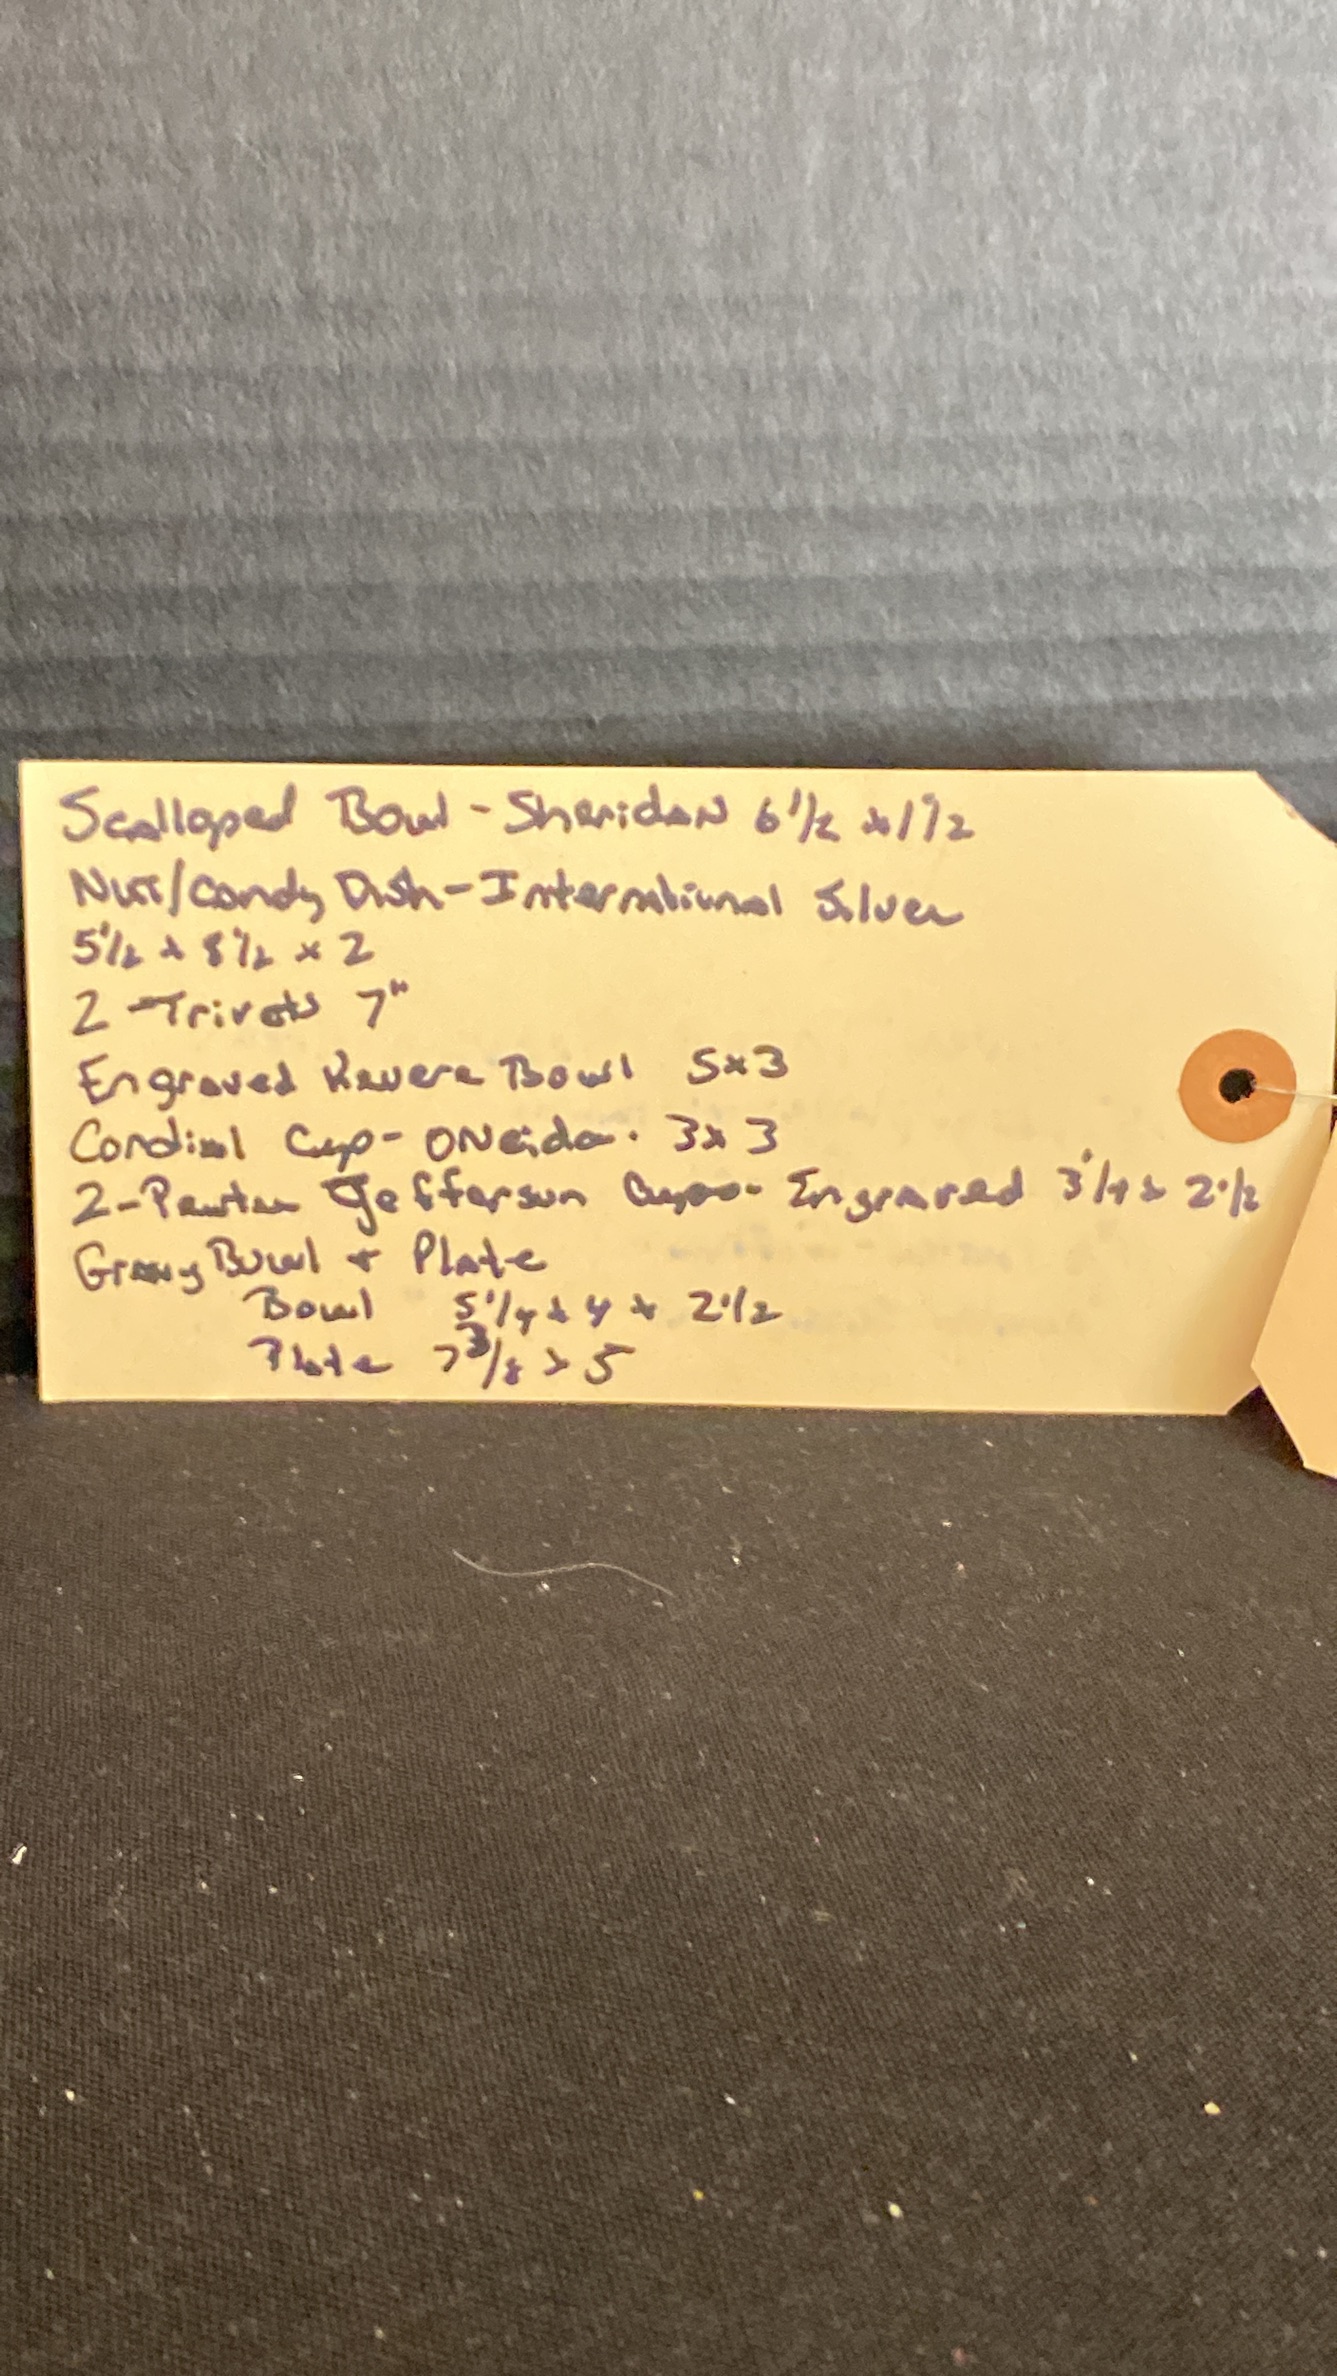 Scalloped Bowl - Sheridan 6 1/2 x 1 1/2
Nut/Candy Dish - International Silver
5 1/2 x 8 1/2 x 2
2 - Trivets 7"
Engraved Revere Bowl 5x3
Cordial Cup - ONeida. 3x3
2 - Pewter Jefferson Cups - Engraved 3 1/4 x 2 1/2
Gravy Bowl + Plate
Bowl 5 1/4 x 4 x 2 1/2
Plate 7 3/8 x 5